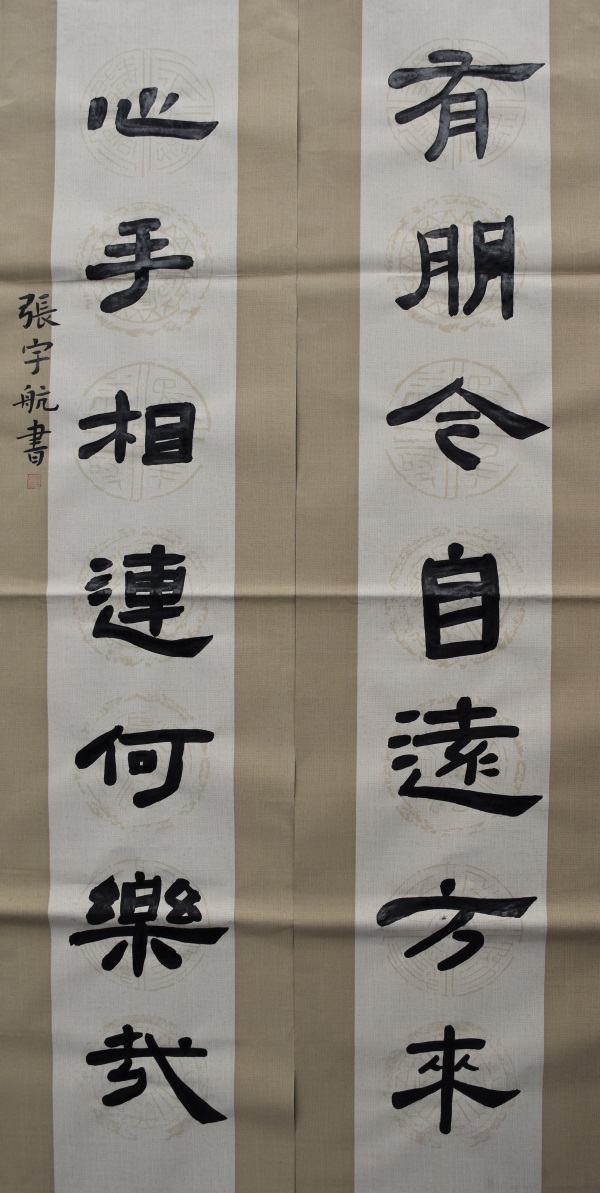 有朋令自遠方來
心手相連何樂哉
張宇航書